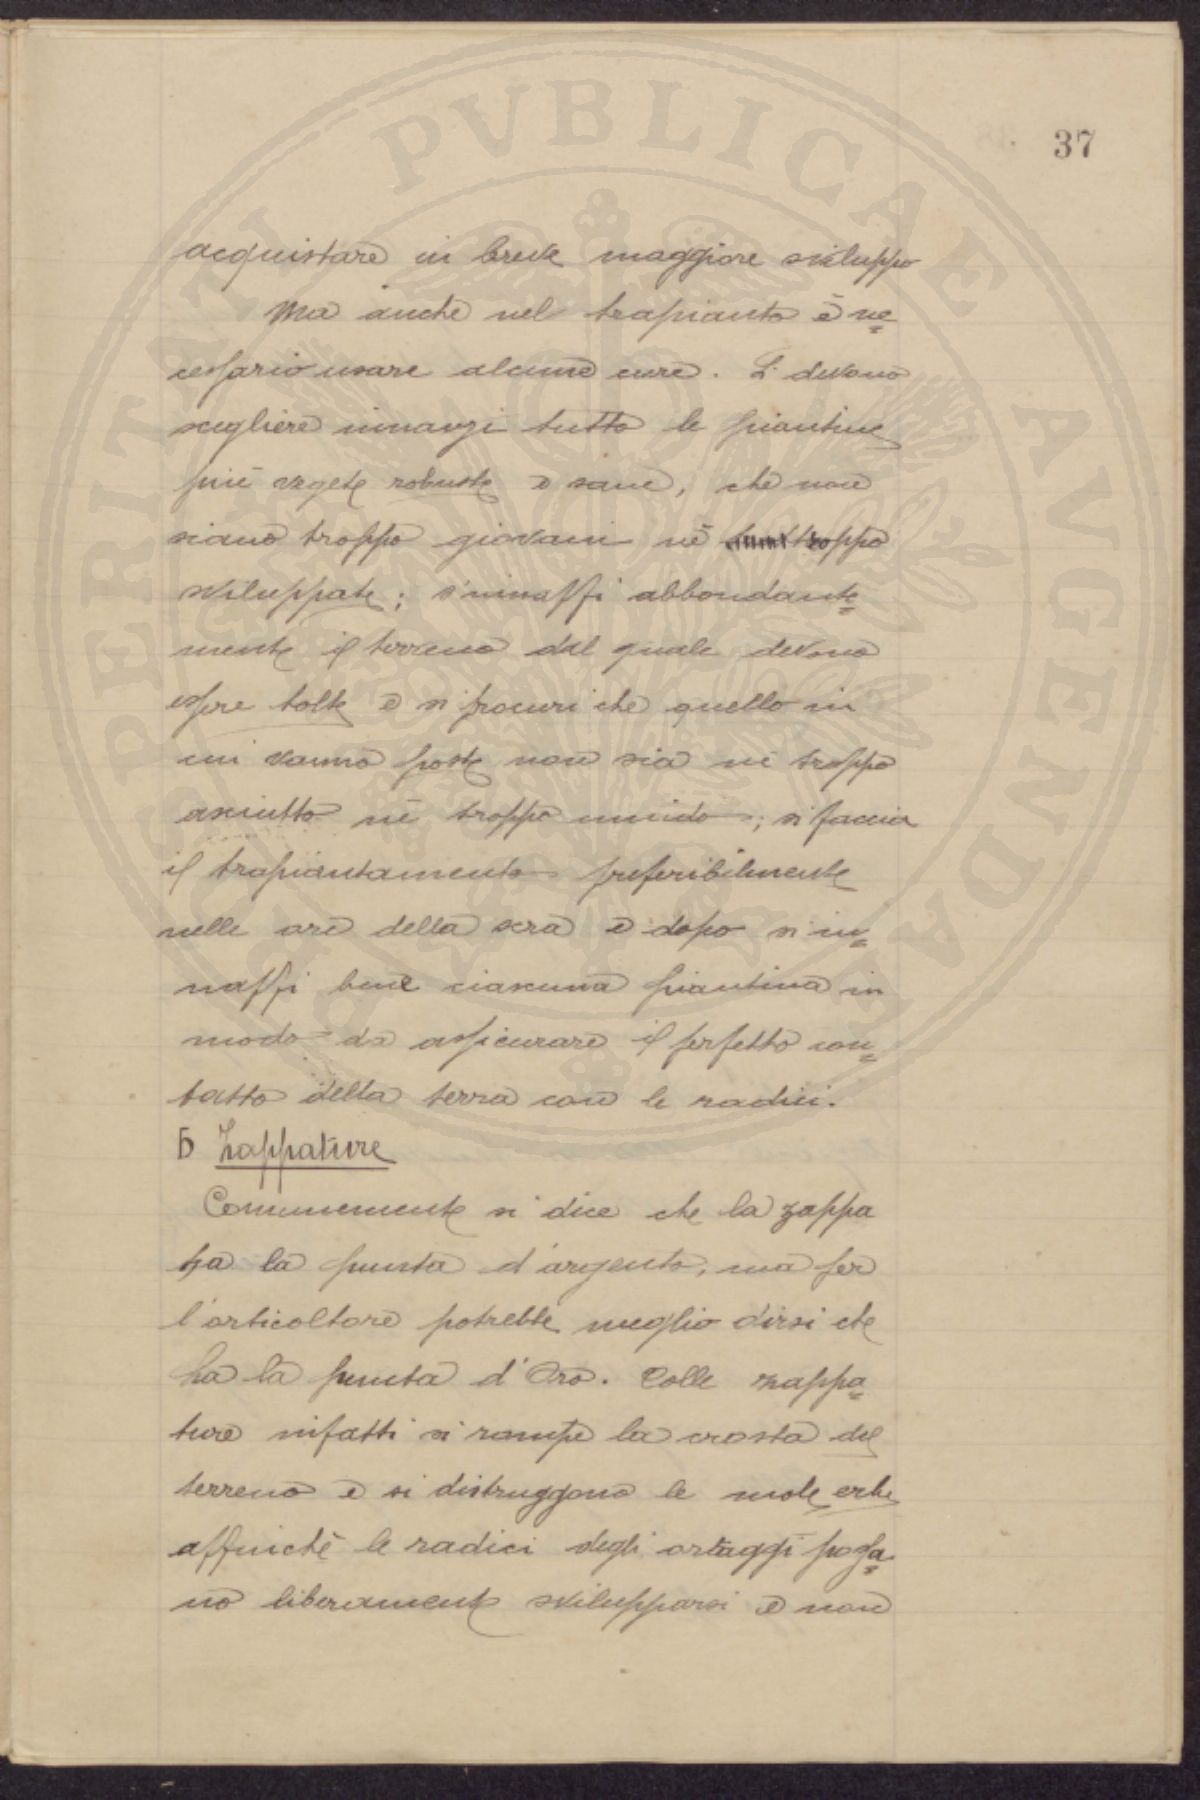 PUBLICAE AUGENDAE PROSPERITATI
37
acquistare in breve maggiore sviluppo
Ma anche nel trapianto è ne=
cessario usare alcune cure. Si devono
scegliere innanzi tutto le piantine
più vegete robuste e sane, che non
siano troppo giovani nè troppo
sviluppate; s'innaffi abbondante=
mente il terreno dal quale devono
essere tolte e si procuri che quello in
cui vanno poste non sia nè troppo
asciutto nè troppo umido; si faccia
il trapiantamento preferibilmente
nelle ore della sera e dopo si in=
naffi bene ciascuna piantina in
modo da assicurare il perfetto con=
tatto della terra con le radici.
5 Zappature
Comunemente si dice che la zappa
ha la punta d'argento, ma per
l'orticoltore potrebbe meglio dirsi che
ha la punta d'Oro. Colle zappa=
ture infatti si rompe la crosta del
terreno e si distruggono le male erbe
affinchè le radici degli ortaggi possa=
no liberamente svilupparsi e non